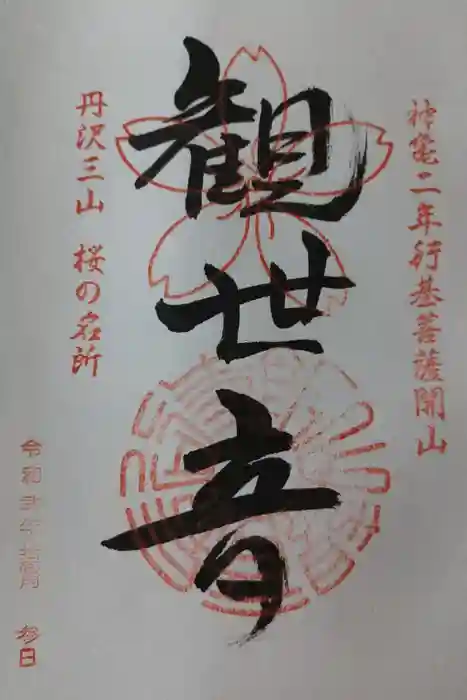 神亀二年行基菩薩開山
観世音
丹沢三山 桜の名所
令和弐年拾壱月 参日